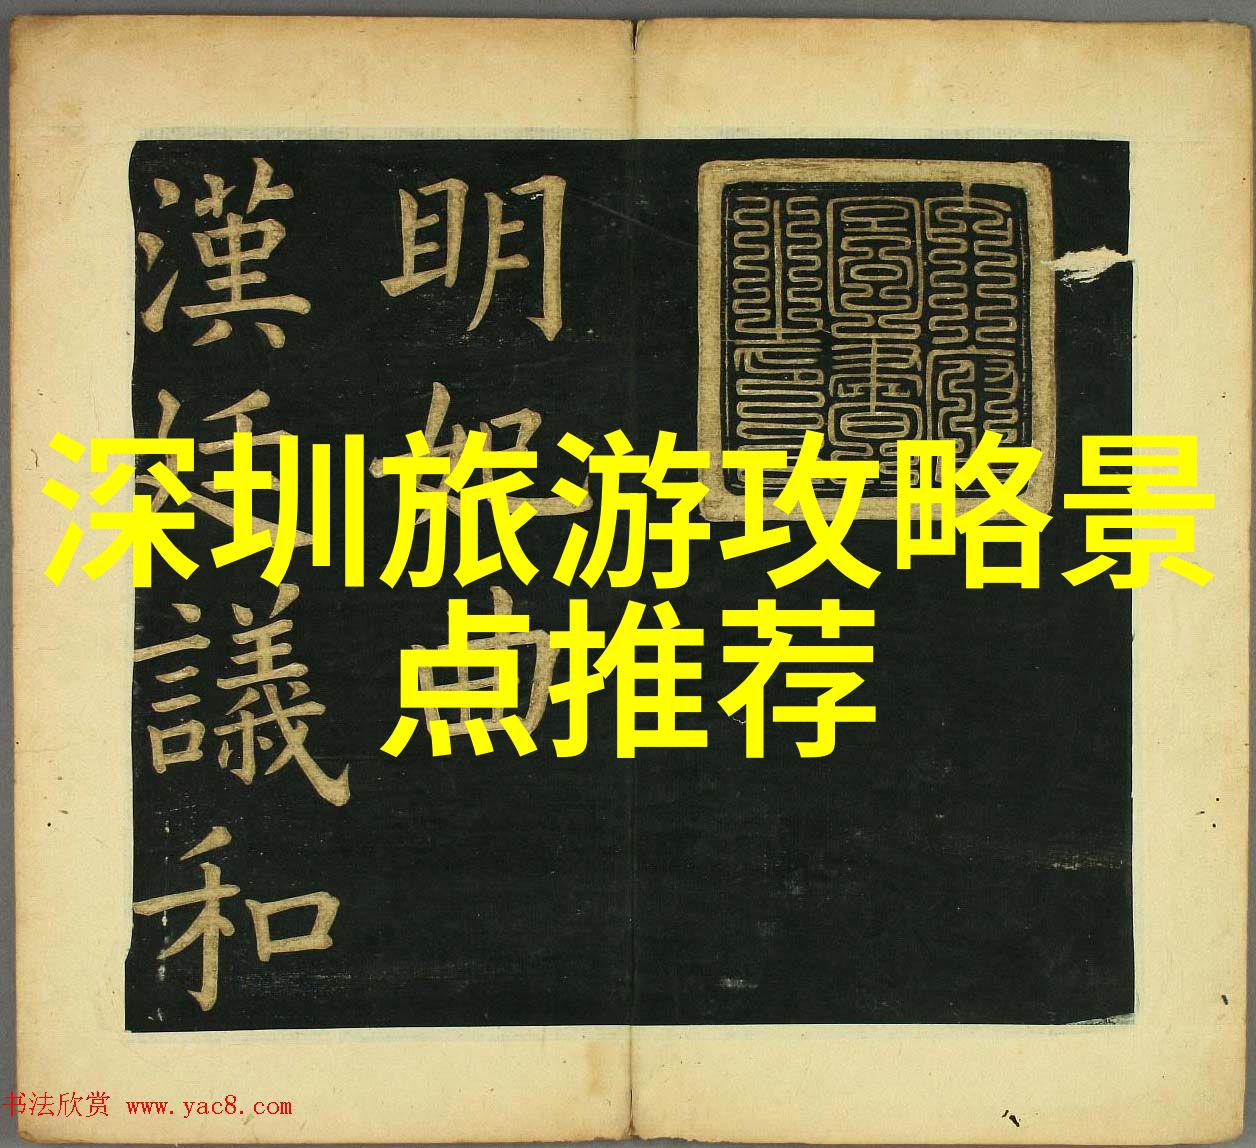 明妃曲
漢妊議和
深圳旅游攻略景
点推荐
书法欣赏 www.yac8.com